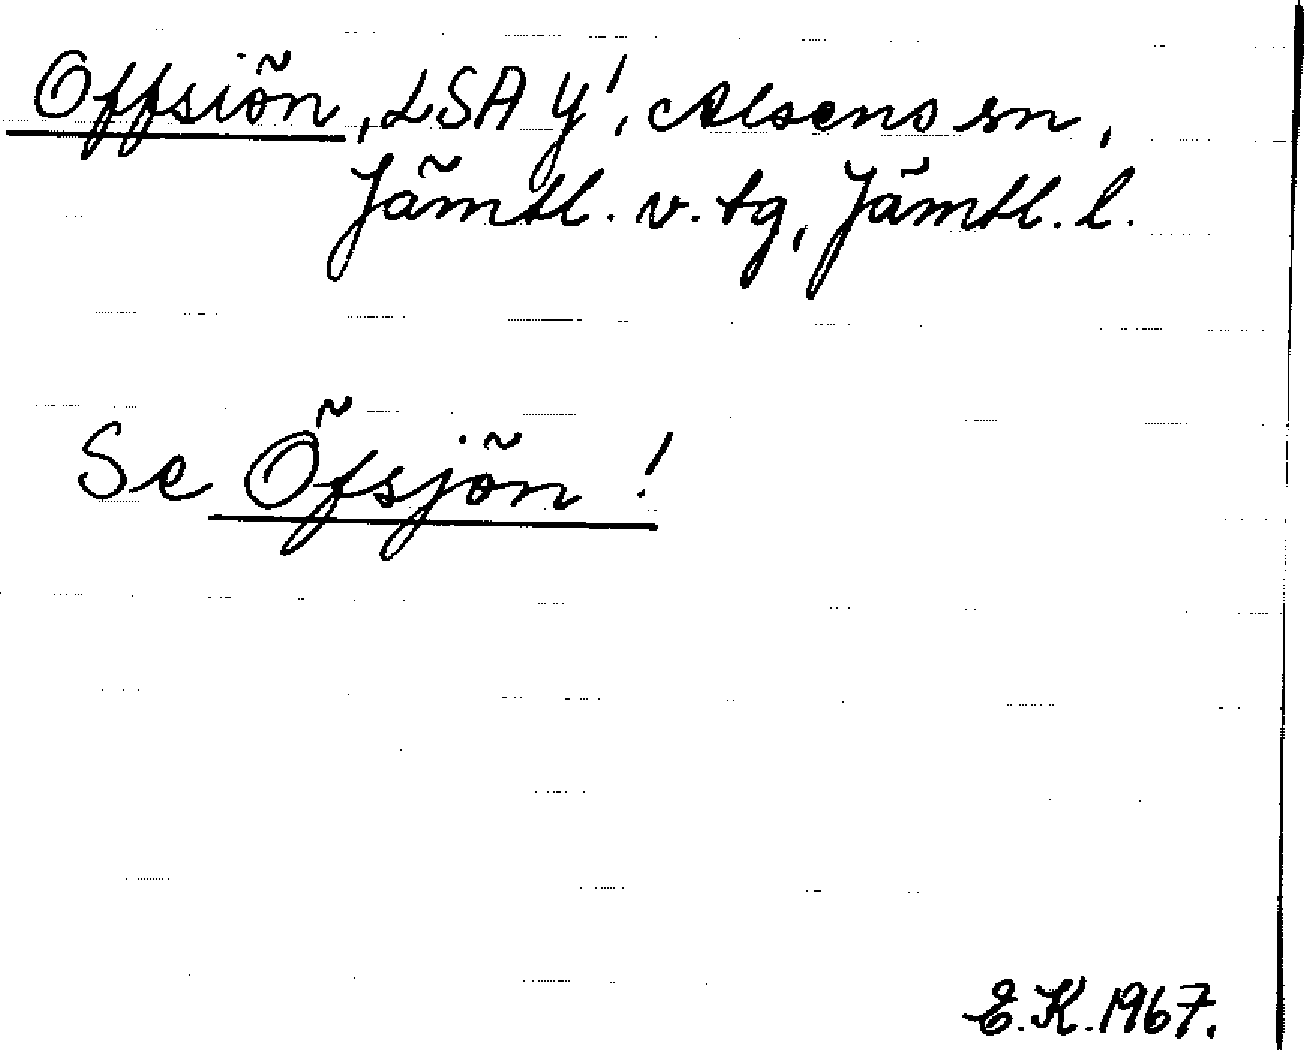 Offsiön, LSA Y!, Alsens sn,
Jämtl. v. tg, Jämtl. l.
Se Öfsjön!
E.K. 1967.